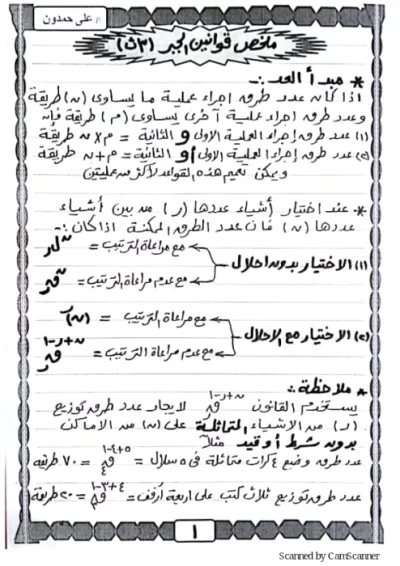 أ/ على حمدون
ملخص قوانين الجبر (٣ث)
* مبدأ العد :-
اذا كان عدد طرق اجراء عملية ما يساوى (ن) طريقة
وعدد طرق إجراء عملية أخرى يساوى (م) طريقة فإن
(١) عدد طرق إجراء العملية الاولى و الثانية = م × ن طريقة
(٢) عدد طرق إجراء العملية الاولى أو الثانية = م + ن طريقة
ويمكن تعميم هذه القواعد لأكثر من عمليتين
* عند اختيار أشياء عددها (ر) من بين أشياء
عددها (ن) فان عدد الطرق الممكنة اذا كان :-
(١) الاختيار بدون احلال
مع مراعاة الترتيب = نلر
مع عدم مراعاة الترتيب = نقر
(٢) الاختيار مع الإحلال
مع مراعاة الترتيب = (ن)ر
مع عدم مراعاة الترتيب = ن+ر-١قر
* ملاحظة :-
يستخدم القانون ن+ر-١قر لايجاد عدد طرق توزيع
(ر) من الاشياء المتماثلة على (ن) من الاماكن
بدون شرط أو قيد مثلاً
عدد طرق وضع ٤ كرات متماثلة فى ٥ سلال = ٥+٤-١ق٤ = ٧٠ طريقة
عدد طرق توزيع ثلاث كتب على اربعة أرفف = ٤+٣-١ق٣ = ٢٠ طريقة
١
Scanned by CamScanner